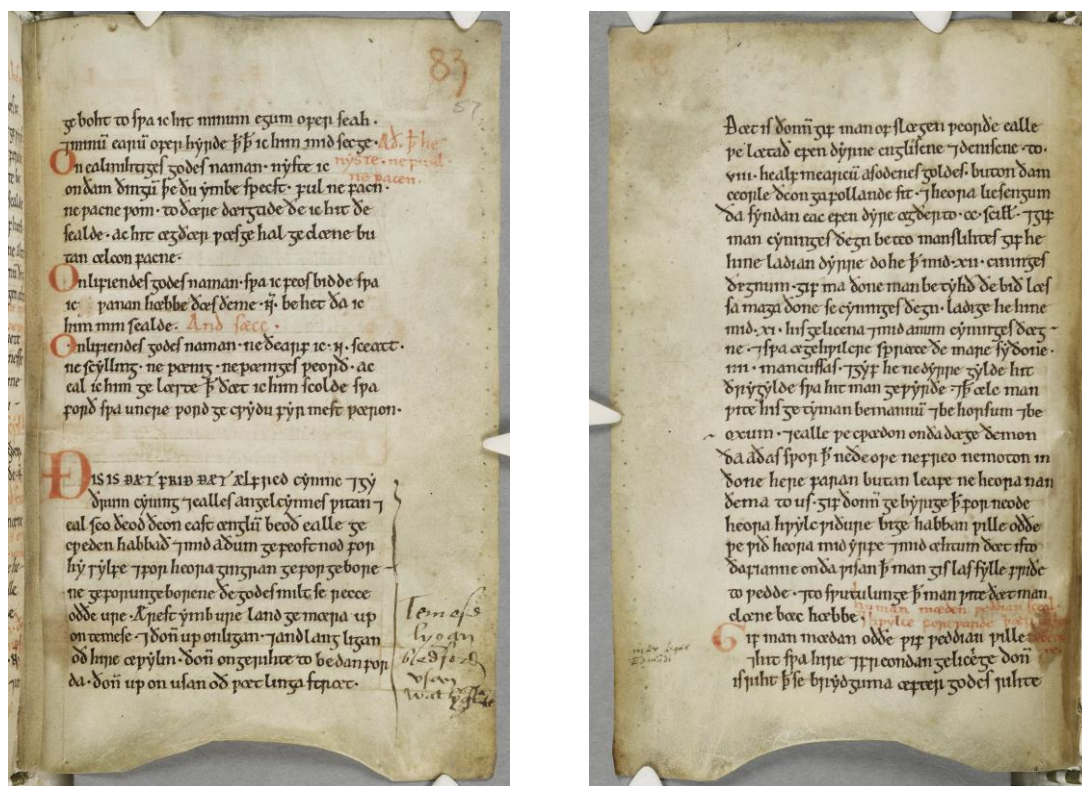 83
57
ge boht to sƿa ic hit minum egum ofer seah.
⁊ minū earū ofer hyrde ꝥꝥ ic him mid secge.
On ealmihtiges godes naman. nyste ic
on ðam ðingū þe ðu ymbe specst. ful ne facn.
ne facne ƿom. to ðære dægtide ðe ic hit ðe
sealde. ac hit ægðær ƿæs ge hal ge clæne bu
tan ælcon facne.
On lifiendes godes naman. sƿa ic feos bidde sƿa
ic ƿanan hæbbe ðæs ðe me .ꝶ. behet ða ic
him min sealde. And sæcc.
On lifiendes godes naman. ne ðearf ic .ꝶ. sceatt.
ne scylling. ne pænig. ne pæniges ƿeorð. ac
eal ic him ge læste ꝥ ðæt ic him scolde sƿa
forð sƿa uncre ƿord ge cƿydu fyrmest ƿæron.
Ðis is ðæt frið ðæt ælfred cyninc ⁊ gy
ðrum cyning ⁊ ealles angelcynnes ƿitan ⁊
eal seo ðeod ðe on east ænglū beoð ealle ge
cƿeden habbað ⁊ mid aðum gefeostnod for
hy sylfe ⁊ for heora gingran ge for gebore
ne ge for ungeborene ðe godes miltse recce
oððe ure. Ærest ymb ure landgemæra up
on temese. ⁊ ðoñ up on ligan. ⁊ andlang ligan
oð hire æƿylm. ðoñ on gerihte to bedanfor
da. ðoñ up on usan oð ƿætlinga stræt.
Temese
lygan
bledford
usan
Ðæt is ðoñ gif man ofslægen ƿeorðe ealle
ƿe lætað efen dyrne engliscne ⁊ deniscne. to.
viii. healfmearcū asodenes goldes. buton ðam
ceorle ðe on gafollande sit. ⁊ heora liesengum
ða syndan eac efen dyre ægðer to .cc. scitt. ⁊ gif
man cyninges ðegn beteo manslihtes gif he
hine ladian dyrre do he ꝥ mid .xii. cininges
ðegnum. gif ma ðone man betyhð ðe bið læs
sa maga ðone se cyninges ðegn. ladige he hine
mid .xi. his gelicena ⁊ mid anum cyninges ðæg
ne. ⁊ sƿa ægehƿilcre spræce ðe mare sy ðone.
iiii. mancussas. ⁊ gyf he ne dyrre gylde hit
ðrygylde sƿa hit man geƿyrðe. ⁊ ꝥ æle man
ƿite his getyman be mannū ⁊ be horsum ⁊ be
oxum. ⁊ ealle ƿe cƿædon on ða dæge ðe mon
ða aðas sƿor ꝥ ne ðeoƿe ne freo ne moton in
ðone here faran butan leafe ne heora nan
ðe ma to us. gif ðoñ gebyrige ꝥ for neode
heora hƿylc ƿið ure bige habban ƿille oððe
ƿe ƿið heora mid yrfe ⁊ mid æhtum ðæt is to
ðafianne on ða ƿisan ꝥ man gislas sylle friðe
to ƿedde. ⁊ to sƿutulunge ꝥ man ƿite ðæt man
clæne bæc hæbbe.
hu man mæden ƿeddian sceal
Gif man mædan oððe ƿif ƿeddian ƿille
⁊ hit sƿa hire ⁊ freondan gelicige ðoñ
is riht ꝥ se brydguma æfter godes rihte